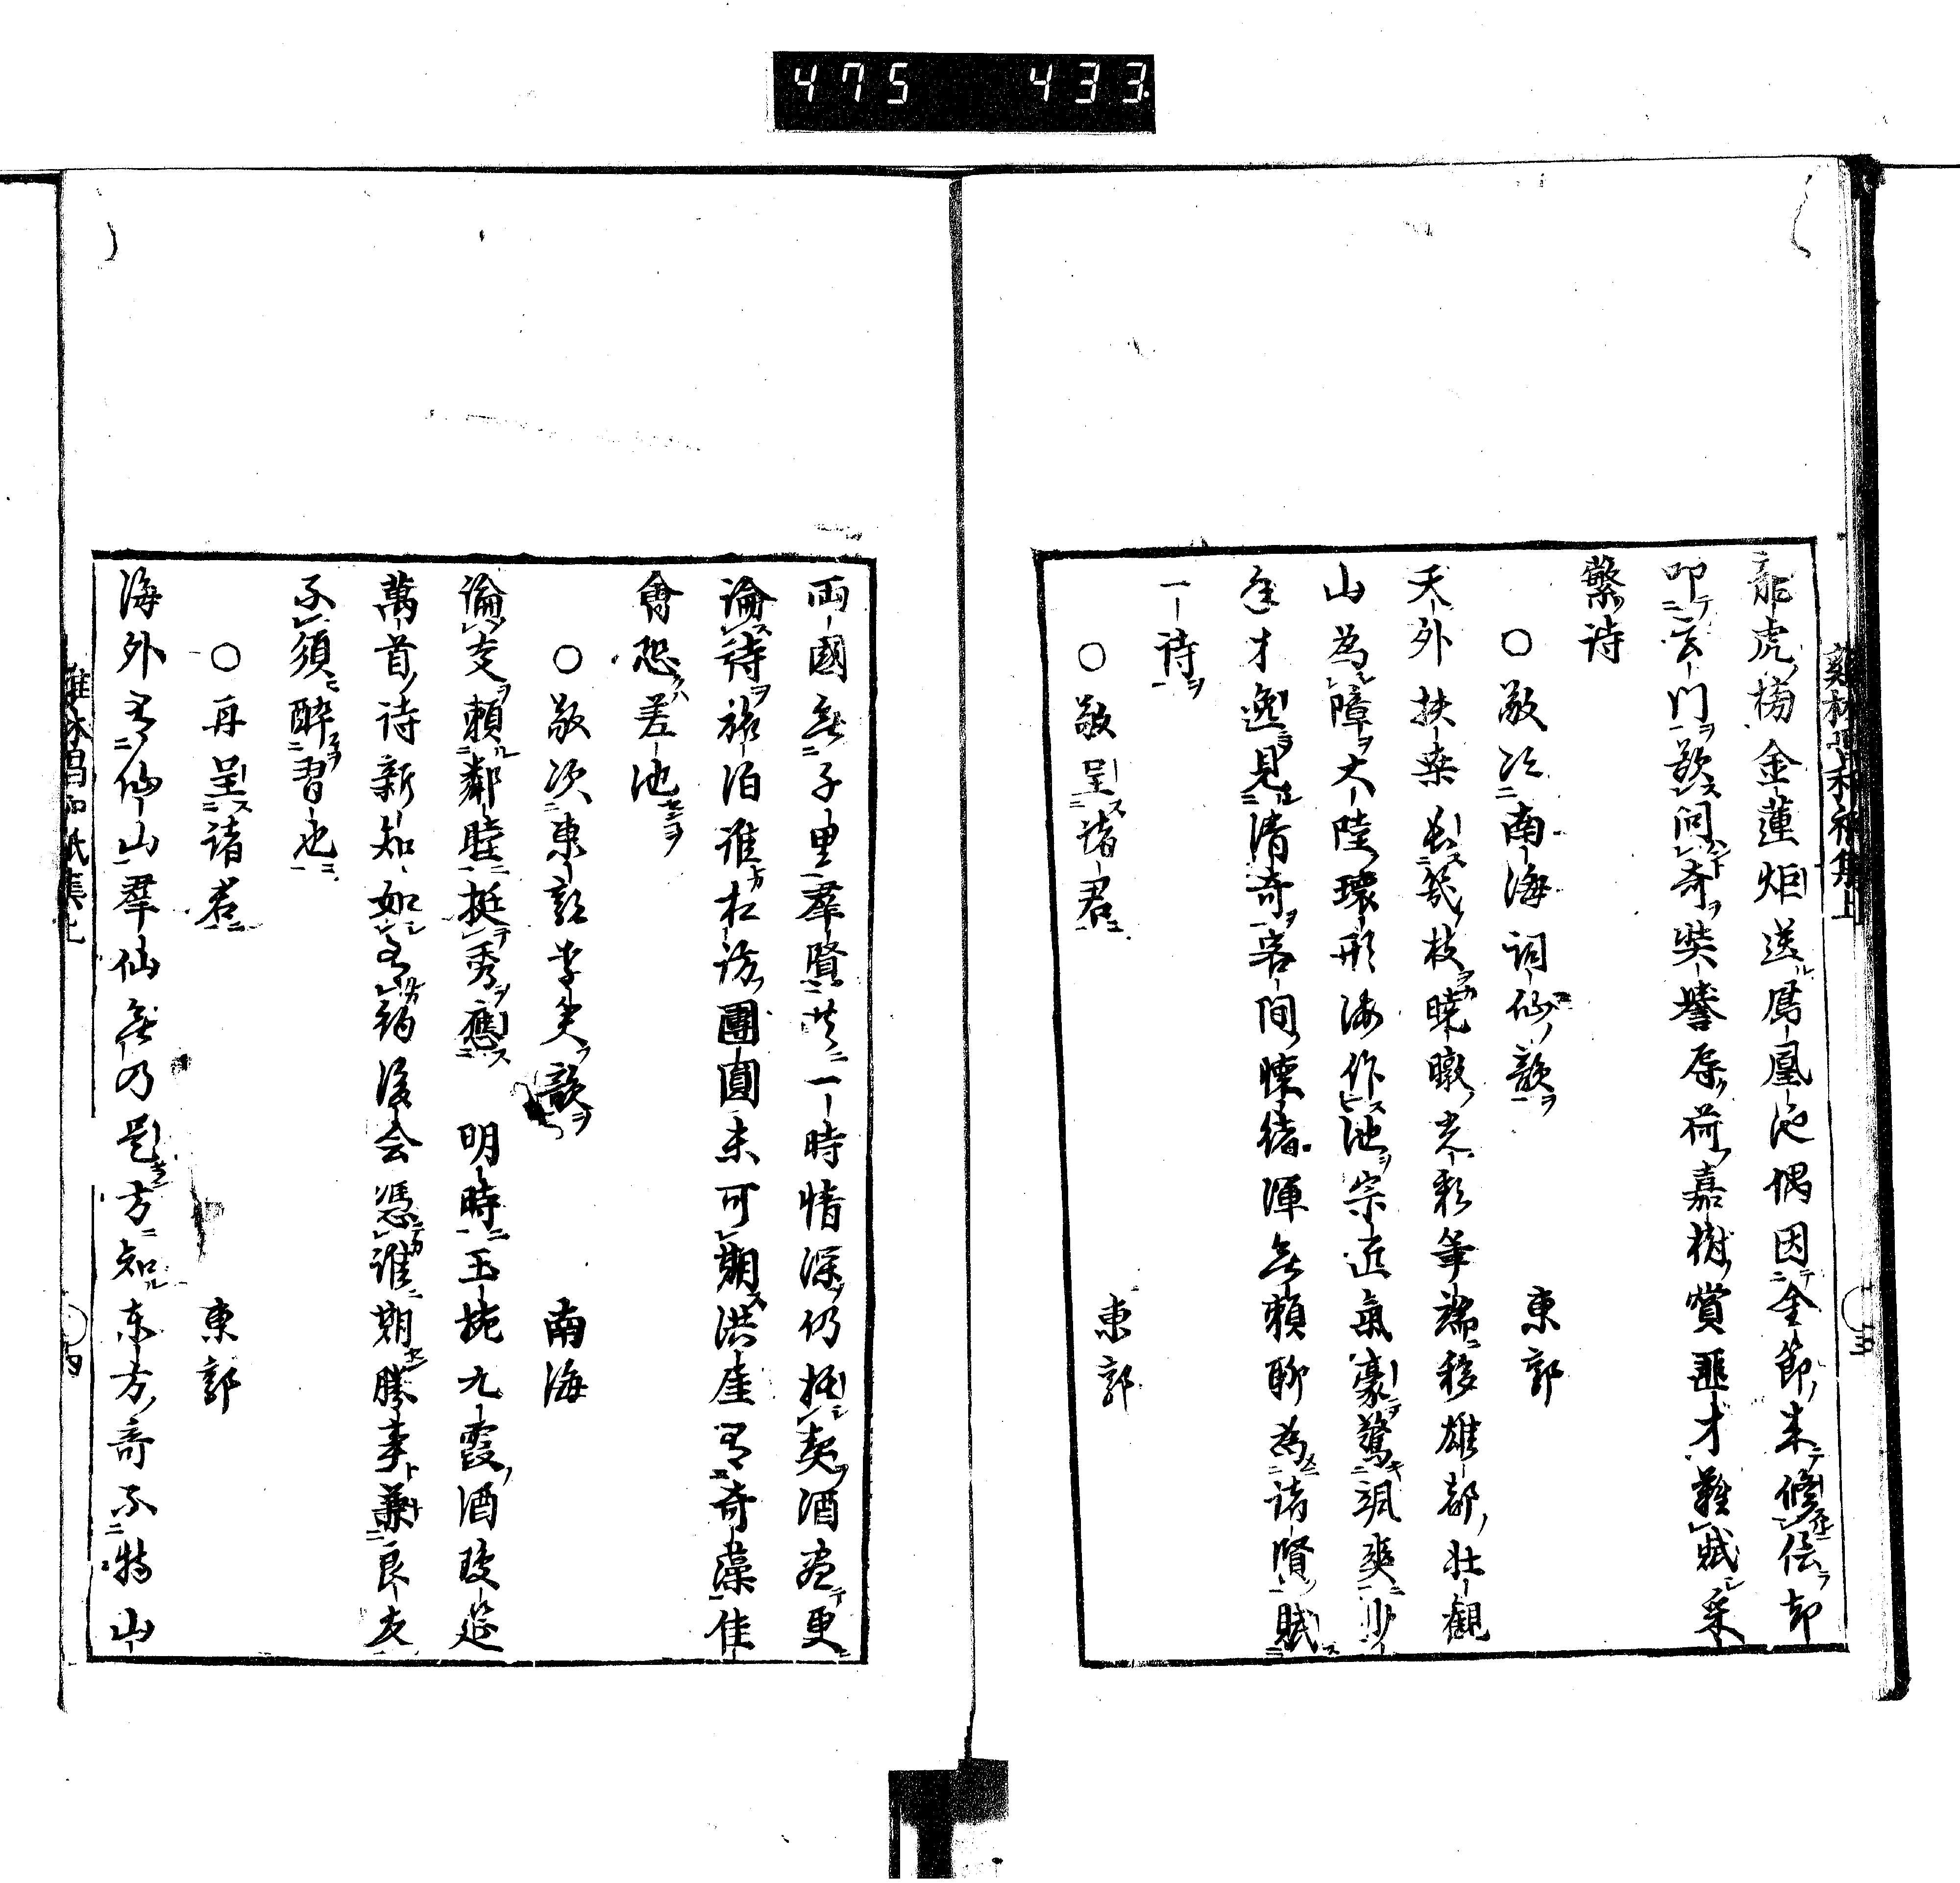 475 433
龍虎榜金蓮炬送鳳凰池偶因金節来修信却
叩玄門欲問奇奘譽辱荷嘉樹賞匪才難賦采
蘩詩
○敬次南海詞伯韻 東郭
天外扶桑長幾枝曉暾光彩筆端移雄都壮觀
山為障大陸環形海作池宗匠氣豪驚颯爽少
年才逸見清奇客間悰緒渾無頼聊為諸賢賦
一詩
○敬呈諸君 東郭
両國無千里羣賢共一時情深仍托契酒尽更
論詩旅泊誰相訪團圓未可期洪崖有奇藻佳
會恐差池
○敬次東郭李史韻 南海
論交頼鄰睦挺秀應 明時玉椀九霞酒瑶筵
萬首詩新知如有約後会憑誰期勝事兼良友
不須醉習池
○再呈諸君 東郭
海外有仙山羣仙無乃是方知東方奇不特山